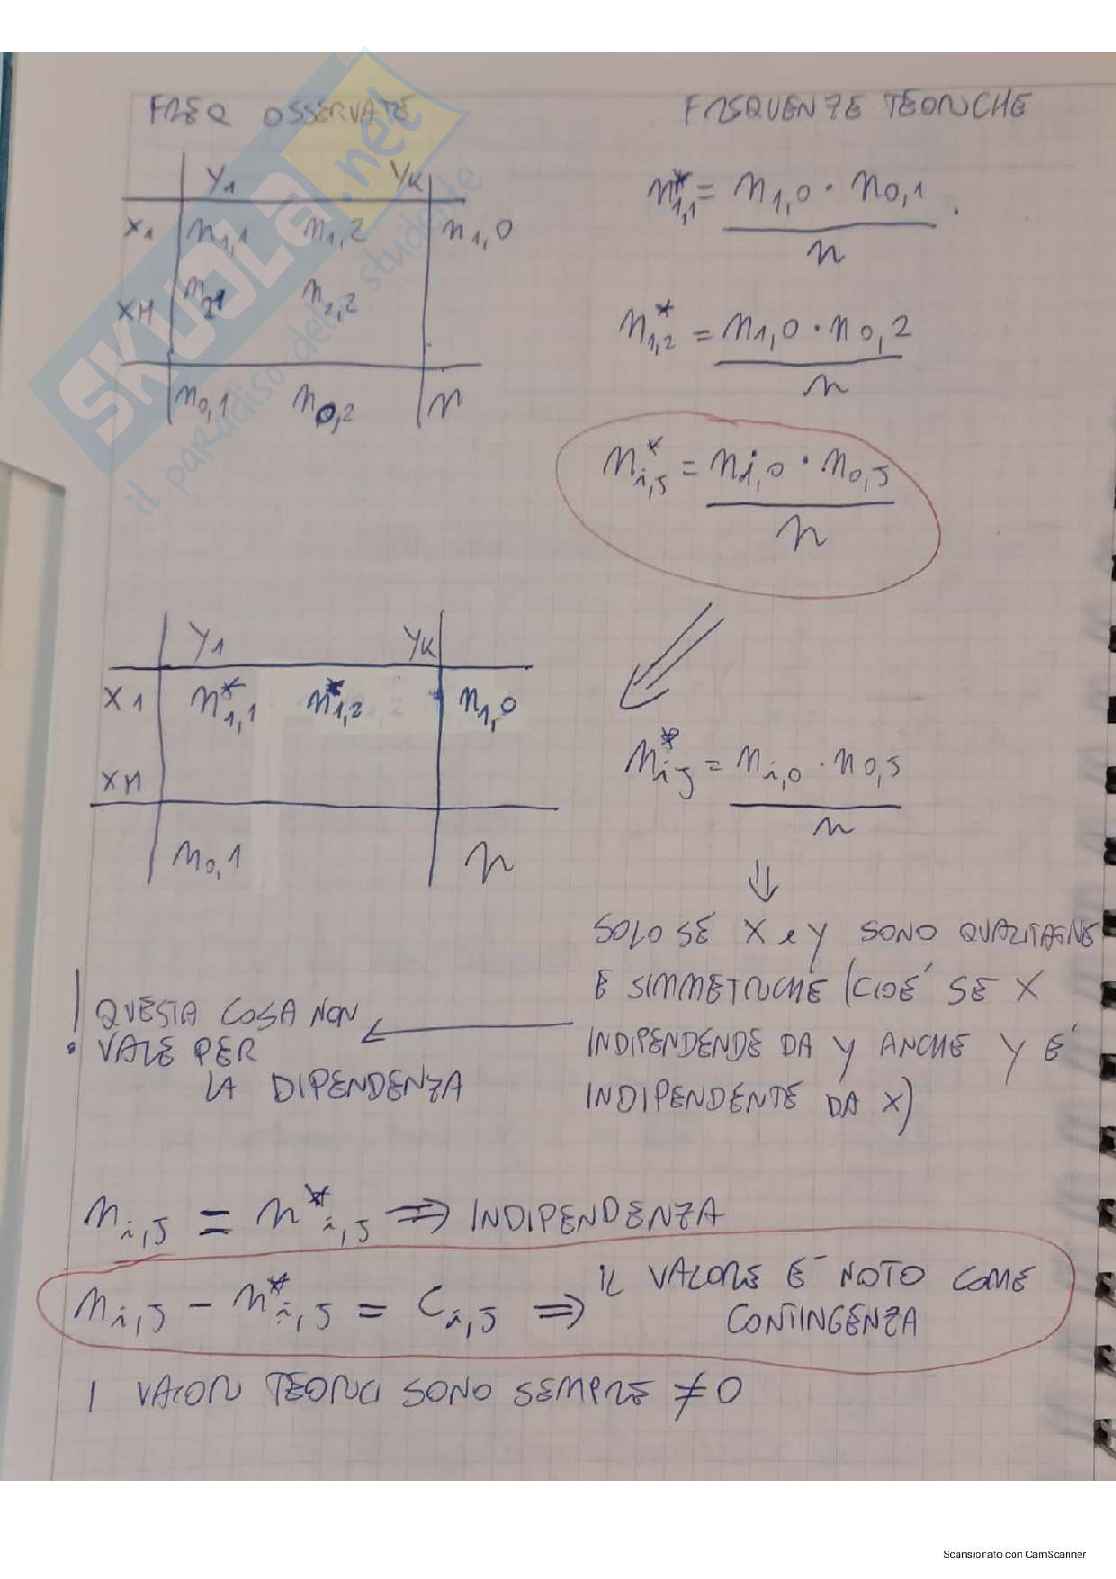 FREQ OSSERVATE
FREQUENZE TEORICHE
Y1 YK
X1 n1,1 n1,2 n1,0
XH n21 n2,2
n0,1 n0,2 n
n*1,1 = n1,0 · n0,1
n
n*1,2 = n1,0 · n0,2
n
n*i,j = ni,0 · n0,j
n
Y1 YK
X1 n*1,1 n*1,2 n1,0
XH
n0,1 n
n*ij = ni,0 · n0,j
n
SOLO SE X e Y SONO QUALITATIVE
E SIMMETRICHE (CIOÉ SE X
INDIPENDENDE DA Y ANCHE Y É
INDIPENDENTE DA X)
! QUESTA COSA NON
VALE PER
LA DIPENDENZA
ni,j = n*i,j ⇒ INDIPENDENZA
ni,j - n*i,j = Ci,j ⇒ IL VALORE É NOTO COME
CONTINGENZA
I VALORI TEORICI SONO SEMPRE ≠ 0
SKUOLA.net
il paradiso dello studente
Scansionato con CamScanner